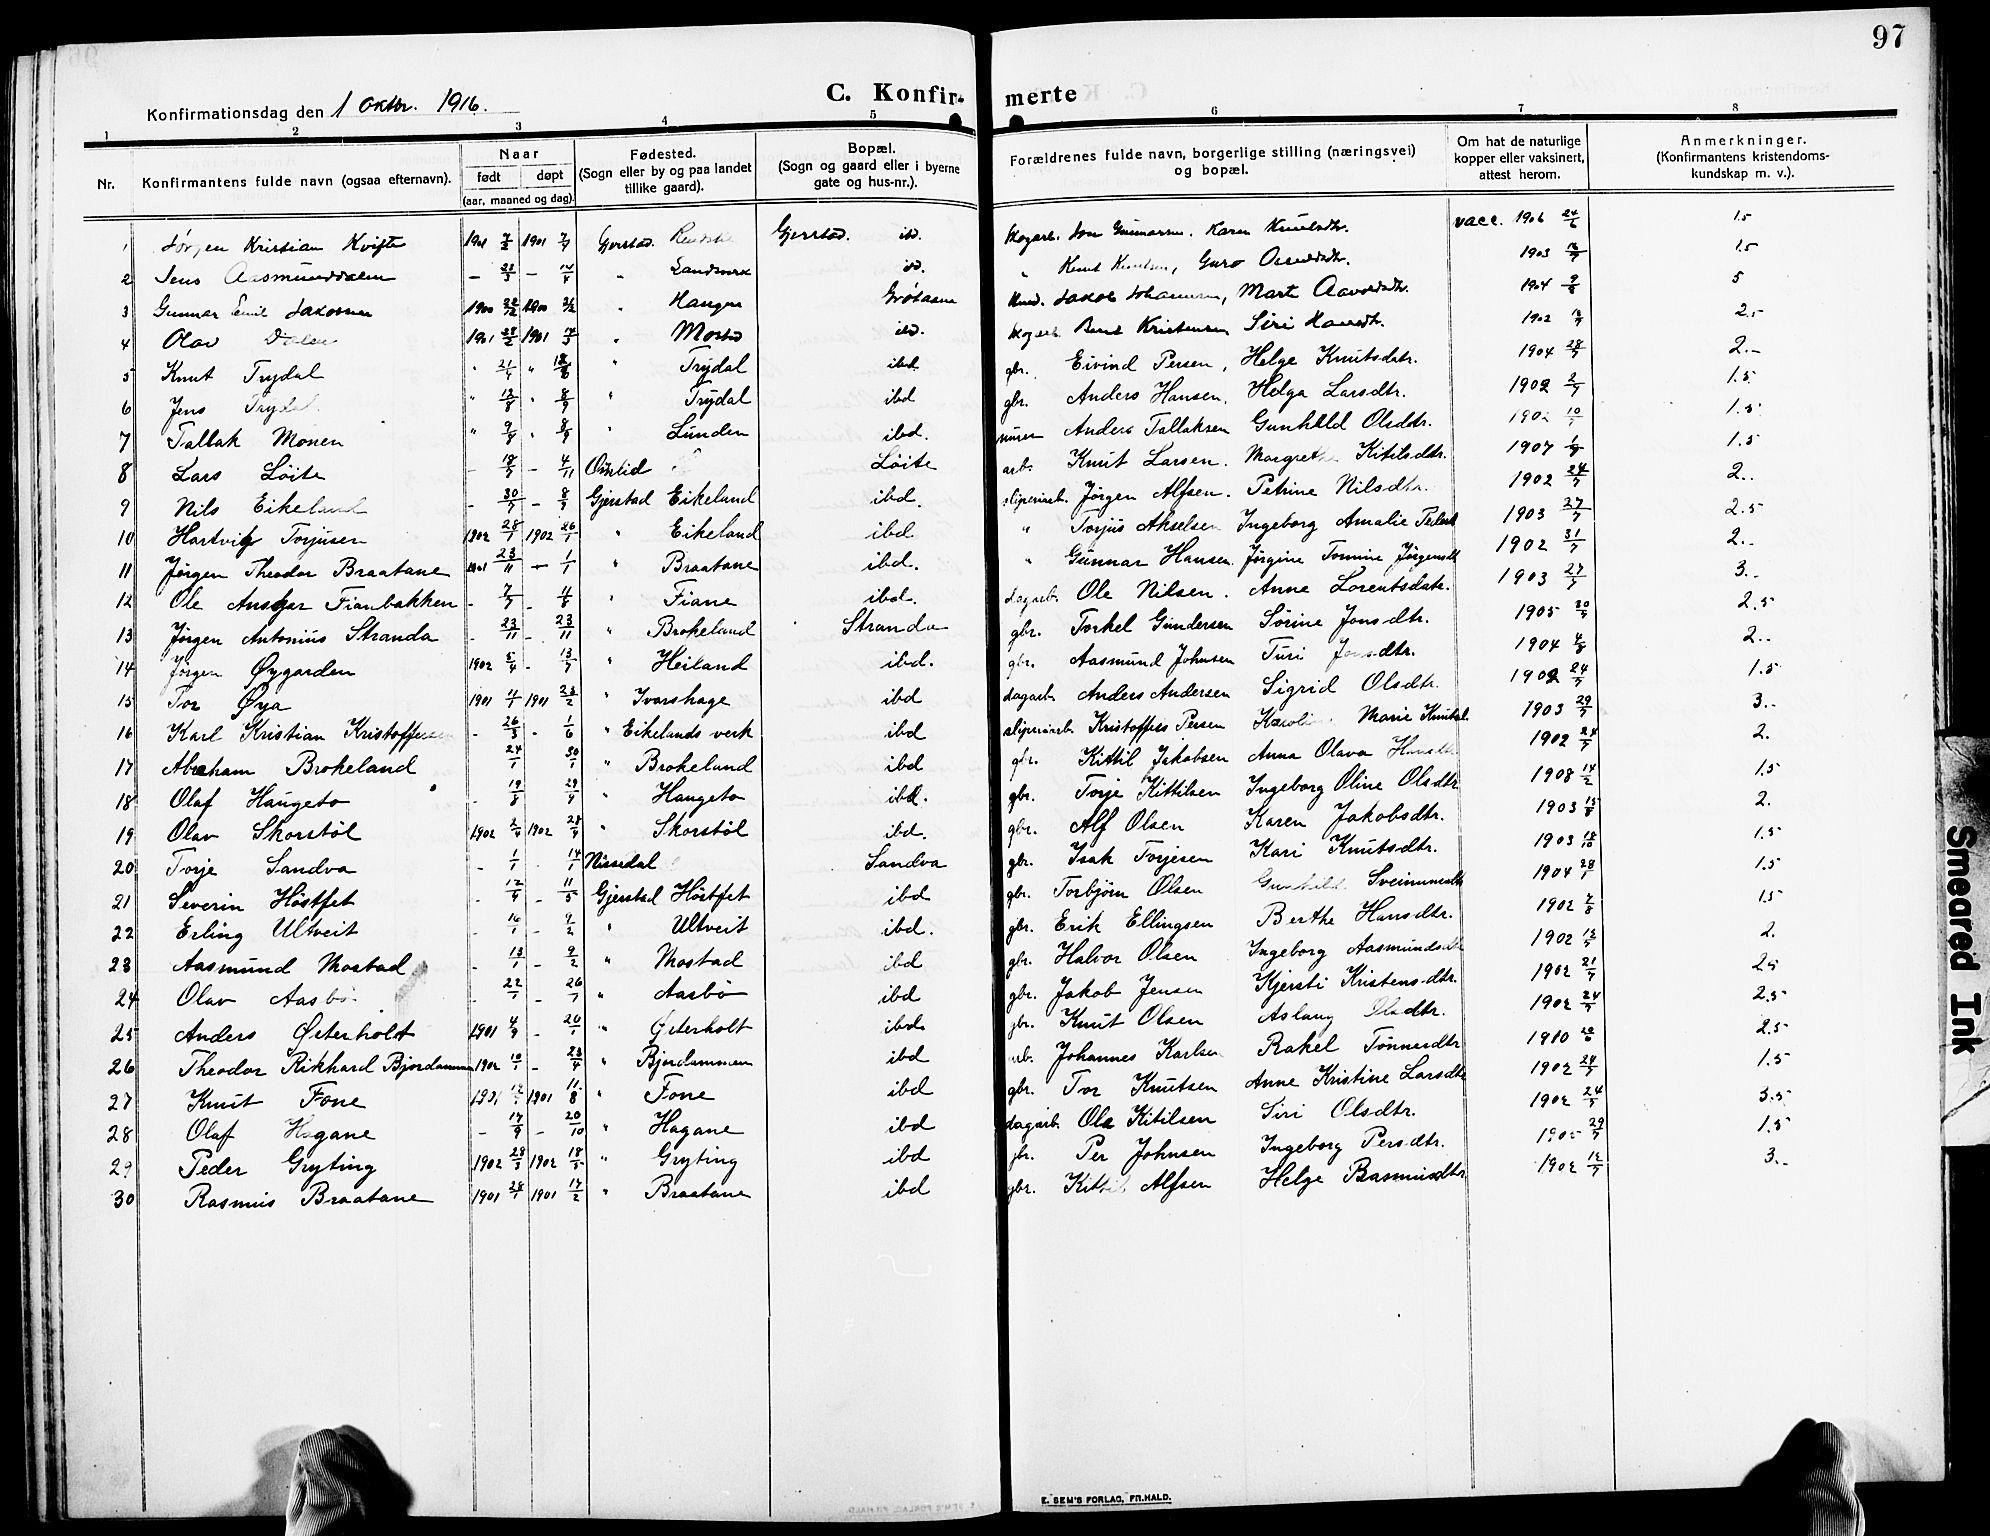 97
C. Konfir- merte
Konfirmationsdag den 1 oktbr. 1916.
1 2 3 4 5 6 7 8
Nr. Konfirmantens fulde navn (ogsaa efternavn). Naar født døpt (aar, maaned og dag). Fødested. (Sogn eller by og paa landet tillike gaard). Bopæl. (Sogn og gaard eller i byerne gate og hus-nr.). Forældrenes fulde navn, borgerlige stilling (næringsvei) og bopæl. Om hat de naturlige kopper eller vaksinert, attest herom. Anmerkninger. (Konfirmantens kristendoms-kundskap m. v.).
1 Jørgen Kristian Kvifte 1901 1901 Gjerstad. Gjerstad. ibd. skogarb. Jon Gunnarsen. Karen Knutsdtr. vacc. 1906 24/6 1.5
2 Jens Aasmunddalen - - " ibd. " Knut Knutsen, Guro 1903 1.5
3 Gunnar Emil Jakobsen 1900 1900 " Haugen Jakob Johannesen, Marte 1904 9/8 5
4 Olav Dalen 1901 28/2 1901 " Mostad ibd. skogarb. Kristensen Siri 1902 2.-
5 Knut Trydal " 21/4 " " Trydal ibd gbr. Eivind Persen, Helge Knutsdatr. 1904 28/7 2.-
6 Jens Trydal " 13/8 " 8/9 " Trydal ibd gbr. Anders Hansen. Helga Larsdtr. 1902 2/7 1.5
7 Tallak Monen " " 8/9 " Lunden ibd. Anders Tallaksen Gunhild Olsdtr. 1902 10/7 1.5
8 Lars Løite - 18/7 - 4/11 Løite arb. Knut Larsen. Margrethe Kitilsdtr. 1907 1.5
9 Nils Eikeland - 30/7 - 8/9 Gjerstad Eikeland ibd. sliperiarb. Jørgen Alfsen. Petrine Nilsdtr. 1902 24/7 2..
10 Hartvig Torjusen 1902 28/1 1902 26/1 " Eikeland ibd " Torjus Akselsen Ingeborg Amalie 1903 27/7 2.5
11 Jørgen Theodor Braatane 1901 23/11 - 1/1 " Braatane ibd. " Gunnar Hansen. Jørgine Tomine Jørgensdt 1902 31/7 2.-
12 Ole Ansgar Fianbakken - 7/7 - 4/8 " Fiane ibd. dagarb. Ole Nilsen. Anne Lorentsdatr. 1903 27/7 3..
13 Jørgen Antonius Stranda - 23/11 - 23/11 " Brokeland Stranda gbr. Torkel Gundersen Sørine Jonsdtr. 1905 20/7 2.5
14 Jørgen Øygarden 1902 5/4 - 13/7 " Heiland ibd. gbr. Aasmund Johnsen Turi Jonsdtr. 1904 4/8 2..
15 Tor Øya 1901 1901 " Ivarshage ibd dagarb. Anders Andersen Sigrid Olsdtr. 1902 24/7 1.5
16 Karl Kristian Kristoffersen - 26/3 - 1/6 " Eikelands verk ibd sliperiarb. Kristoffers Persen Karoline Marie 1903 29/7 3..
17 Abraham Brokeland 24/1 30/1 " Brokeland ibd gbr. Kittil Jakobsen Anna Olava 1902 24/7 2.
18 Olaf Haugeto - 19/8 " Haugeto ibd. gbr. Torje Kittilsen Ingeborg Oline Olsdtr 1908 14/2 1.5
19 Olav Skorstøl 1902 2/4 1902 " Skorstøl ibd. gbr. Alf Olsen Karen Jakobsdtr. 1903 15/8 2.
20 Torje Sandva - 1/1 - 14/1 Nissedal Sandva gbr. Isak Torjesen Kari Knutsdtr. 1903 18/10 1.5
21 Severin Høstfet - - 11/5 Gjerstad Høstfet ibd gbr. Torbjørn Olsen Gunhild 1904 1.5
22 Erling Ultveit - 16/1 - 9/2 " Ultveit ibd. gbr. Erik Ellingsen Berthe Hansdtr. 1902 7/8 1.5
23 Aasmund Mostad - 13/1 - 9/2 " Mostad ibd gbr. Halvor Olsen Ingeborg Aasmundsdtr 1902 2.
24 Olav Aasbø - 22/1 - " Aasbø ibd gbr. Jakob Jensen Kjersti Kristensdtr. 1902 21/7 2.5
25 Anders Østerholdt 1901 4/9 - " Østerholt ibd. gbr. Knut Olsen Aslaug Olsdtr. 1902 24/7 2.5
26 Theodor Rikhard Bjordammen 1902 10/1 - 23/4 " Bjordammen ibd arb. Johannes Karlsen Rakel Tønnesdtr 1910 20/6 2.5
27 Knut Fone 1901 1901 11/8 " Fone ibd gbr. Tor Knutsen Anne Kristine Larsdtr 1902 24/7 1.5
28 Olaf Hagane - 17/9 - 20/10 " Hagane ibd dagarb. Ole Kitilsen Siri Olsdtr. 1902 24/7 3.5
29 Peder Gryting 1902 28/3 1902 18/5 " Gryting ibd gbr. Per Johnsen Ingeborg Persdtr. 1905 29/7 1.5
30 Rasmus Braatane 1901 1901 17/2 " Braatane ibd gbr. Kittil Alfsen Helge Rasmusdtr 1902 12/7 3..
E. SEM'S FORLAG, FR.HALD.
Smeared Ink